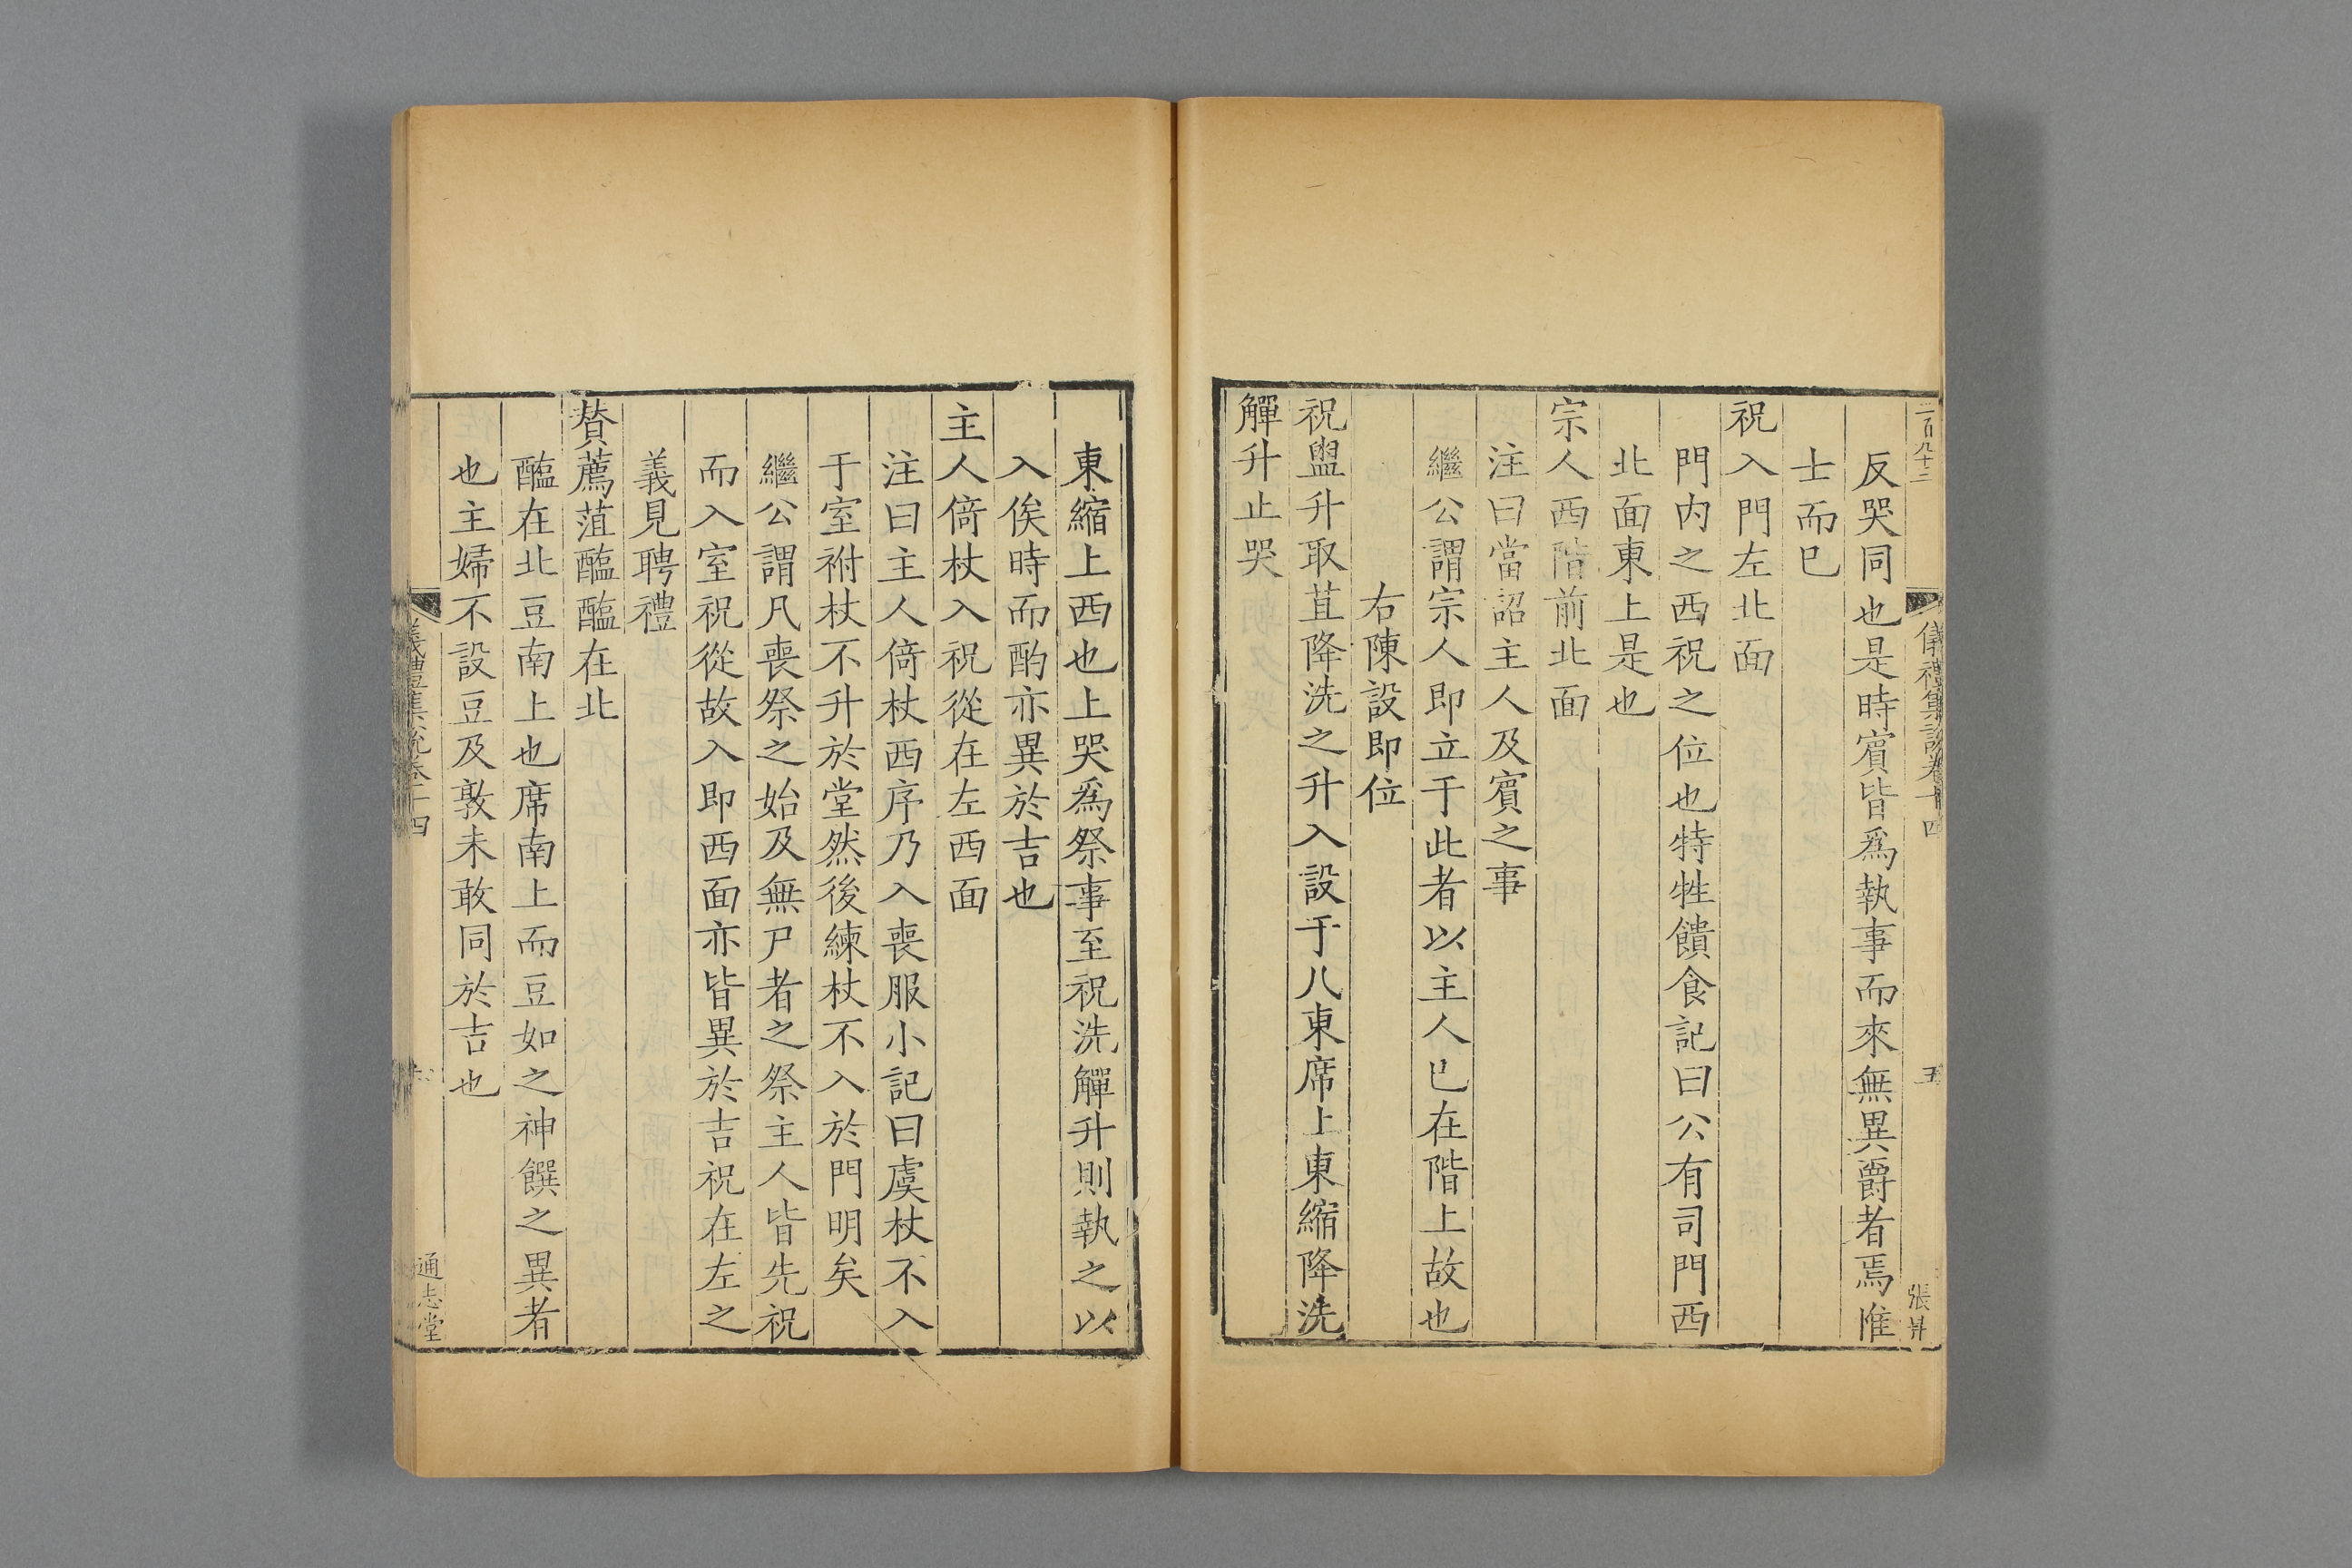 二百九十三
儀禮集說卷十四
五
張昇
反哭同也是時賓皆爲執事而來無異爵者焉惟
士而已
祝入門左北面
門内之西祝之位也特牲饋食記曰公有司門西
北面東上是也
宗人西階前北面
注曰當詔主人及賓之事
繼公謂宗人即立于此者以主人已在階上故也
右陳設即位
祝盥升取苴降洗之升入設于几東席上東縮降洗
觶升止哭
東縮上西也上哭爲祭事至祝洗觶升則執之以
入俟時而酌亦異於吉也
主人倚杖入祝從在左西面
注曰主人倚杖西序乃入喪服小記曰虞杖不入
于室祔杖不升於堂然後練杖不入於門明矣
繼公謂凡喪祭之始及無尸者之祭主人皆先祝
而入室祝從故入即西面亦皆異於吉祝在左之
義見聘禮
贊薦菹醢醢在北
醢在北豆南上也席南上而豆如之神饌之異者
也主婦不設豆及敦未敢同於吉也
儀禮集說卷十四
通志堂